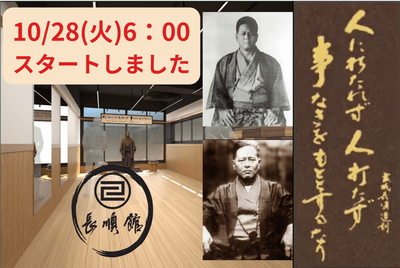 10/28(火)6：00
スタートしました
長順館
人に打たれず 人打たず
事なきをもととするなり
宮城長順遺訓